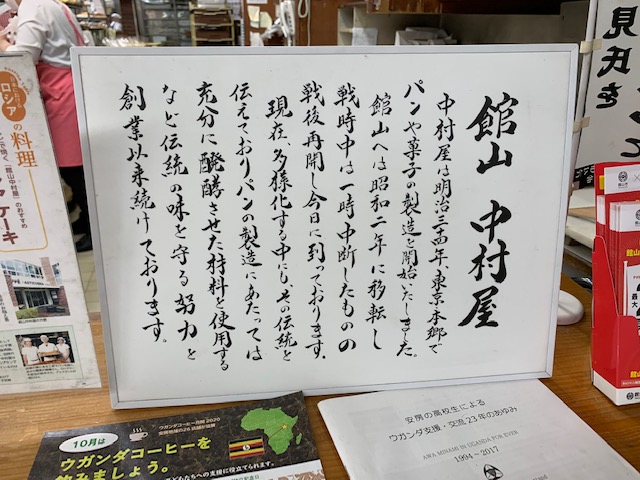 館山 中村屋
中村屋は明治三十四年、東京・本郷で
パンや菓子の製造を開始いたしました。
館山へは昭和二年に移転し
戦時中は一時中断したものの
戦後再開し今日に到っております。
現在、多様化する中にも、その伝統を
伝えておりパンの製造にあたっては
充分に醗酵させた材料を使用する
など伝統の味を守る努力を
創業以来続けております。
見氏を
ロシア
の料理
「館山中村屋」のおすすめ
ケーキ
ウガンダコーヒー月間 2020
10月は
ウガンダコーヒーを
飲みましょう。
安房の高校生による
ウガンダ支援・交流 23 年のあゆみ
AWA MINAMI IN UGANDA FOR EVER
1994～2017
館山
最大